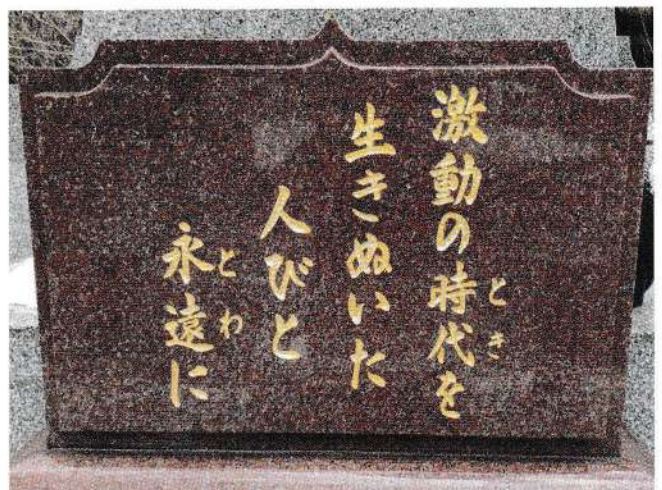 激動の時代を
とき
生きぬいた
人びと
永遠に
とわ